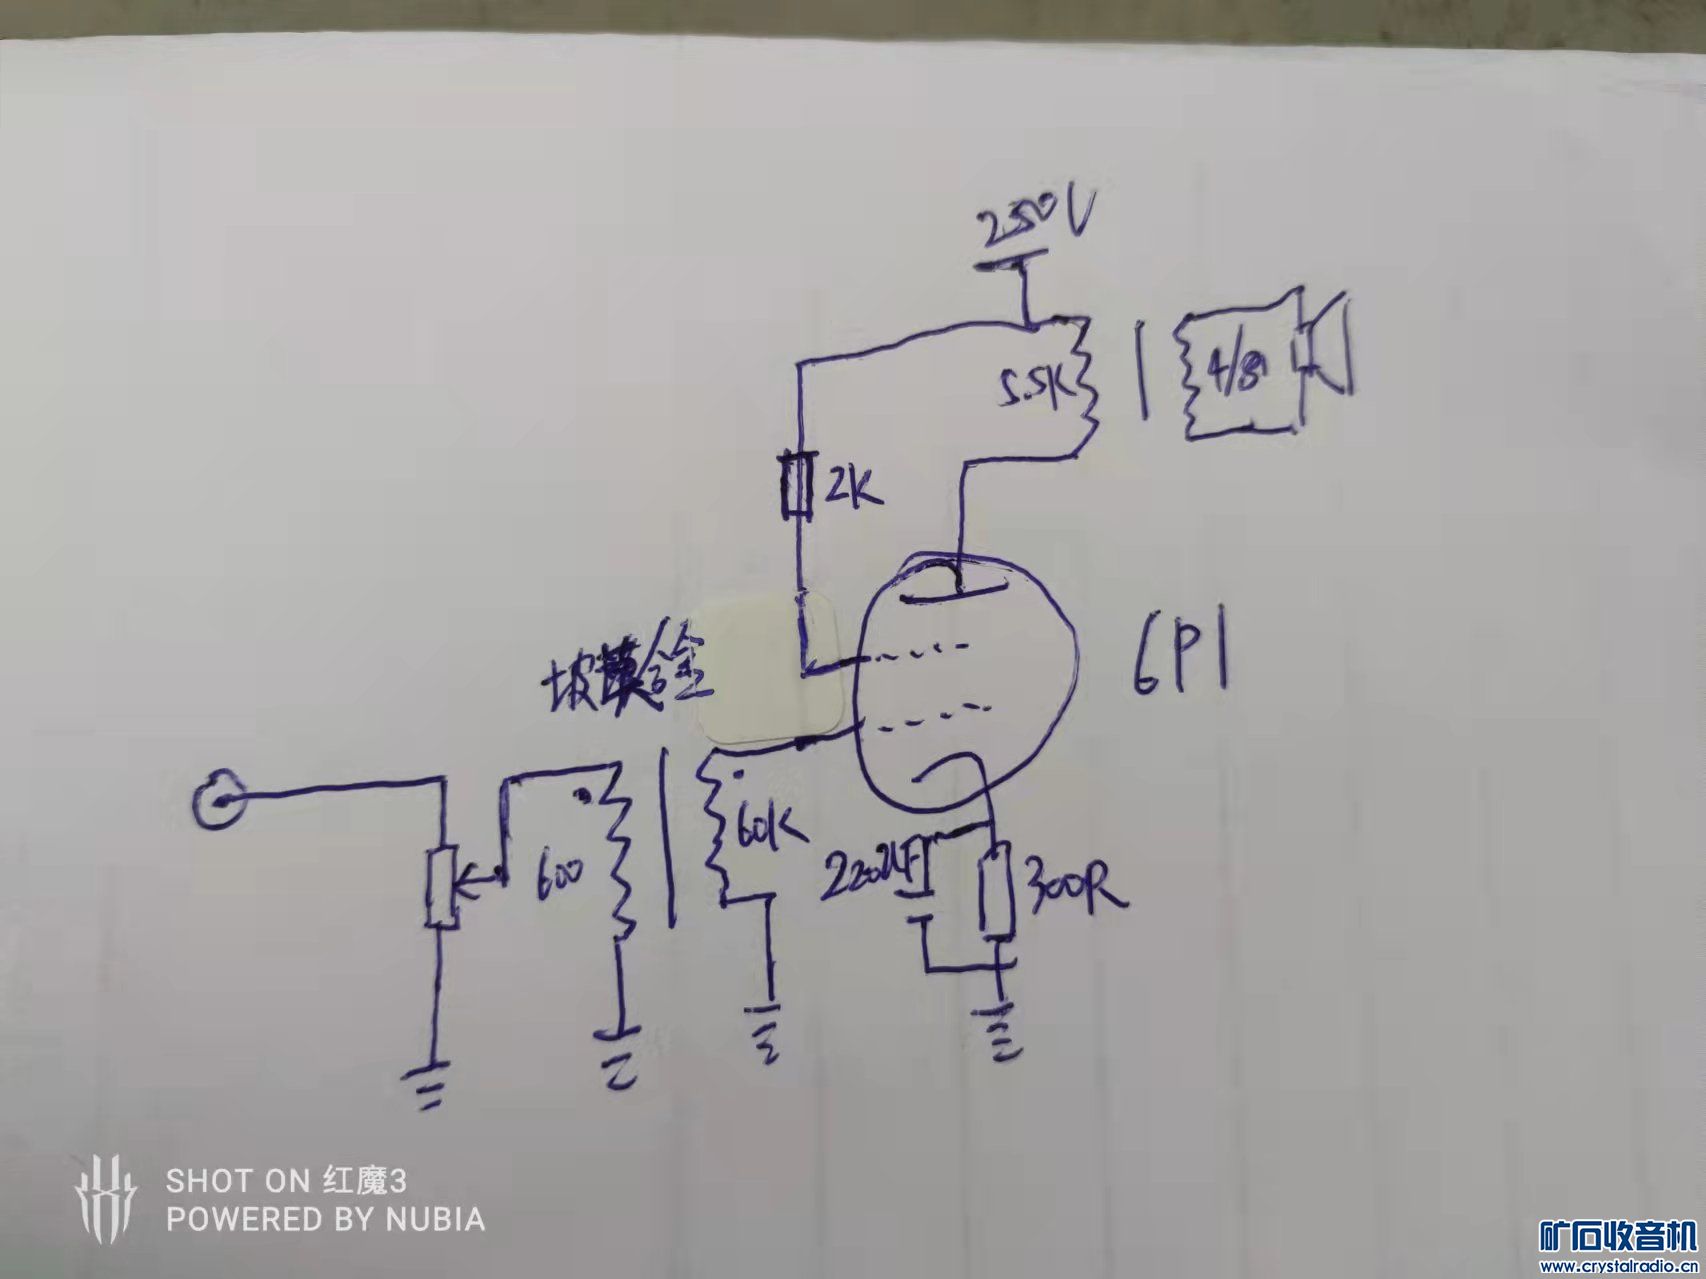 250V
5.5K
4/8Ω
2K
坡莫合金
6P1
600
60K
220UF
300R
SHOT ON 红魔3
POWERED BY NUBIA
矿石收音机
www.crystalradio.cn